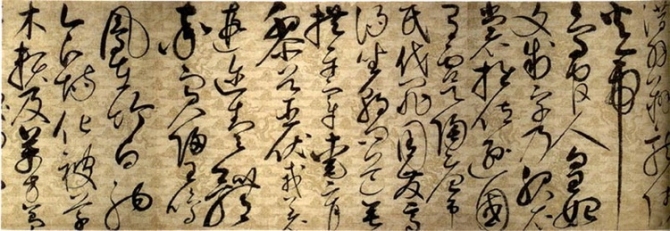 鱗潛羽翔龍師
火帝
鳥官人皇始
制文字乃服衣
裳推位遜國
有虞陶唐弔
民伐罪周發商
湯坐朝問道垂
拱平章愛育
黎首臣伏戎羌
遐邇壹體
率賓歸王鳴
鳳在竹白駒
食場化被草
木賴及萬方蓋